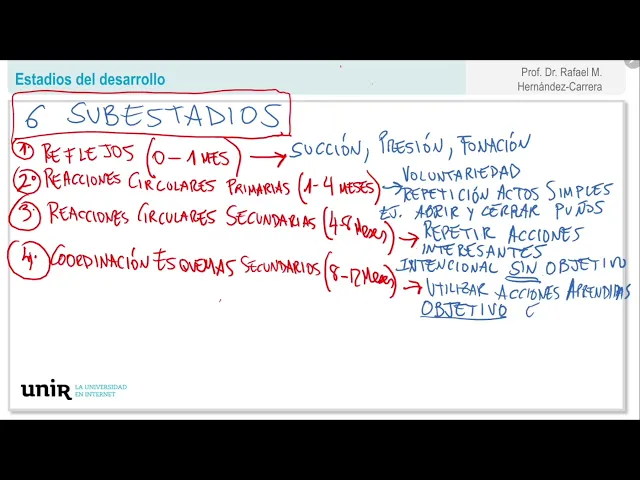 Estadios del desarrollo
Prof. Dr. Rafael M.
Hernández-Carrera
6 SUBESTADIOS
1º REFLEJOS (0-1 MES) → SUCCIÓN, PRESIÓN, FONACIÓN
2º REACCIONES CIRCULARES PRIMARIAS (1-4 MESES) → VOLUNTARIEDAD
REPETICIÓN ACTOS SIMPLES
EJ. ABRIR Y CERRAR PUÑOS
3. REACCIONES CIRCULARES SECUNDARIAS (4-8 MESES) → REPETIR ACCIONES
INTERESANTES
INTENCIONAL SIN OBJETIVO
4. COORDINACIÓN ESQUEMAS SECUNDARIOS (8-12 MESES) → UTILIZAR ACCIONES APRENDIDAS
OBJETIVO
unir LA UNIVERSIDAD
EN INTERNET